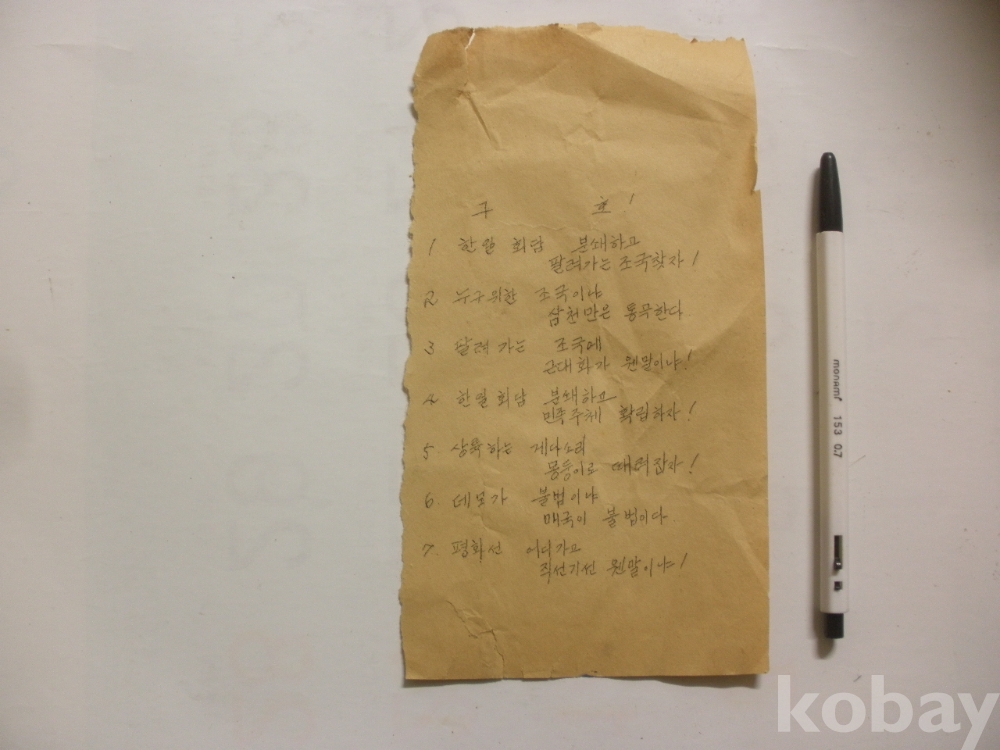 구 호!
1 한일 회담 분쇄하고
팔려가는 조국찾자!
2 누구위한 조국이냐
삼천만은 통곡한다
3 팔려 가는 조국에
근대화가 웬말이냐!
4 한일회담 분쇄하고
민족주체 확립하자!
5 상륙하는 게다소리
몽둥이로 때려잡자!
6. 데모가 불법이냐
매국이 불법이다
7. 평화선 어디가고
직선기선 웬말이냐!
monami 153 0.7
kobay